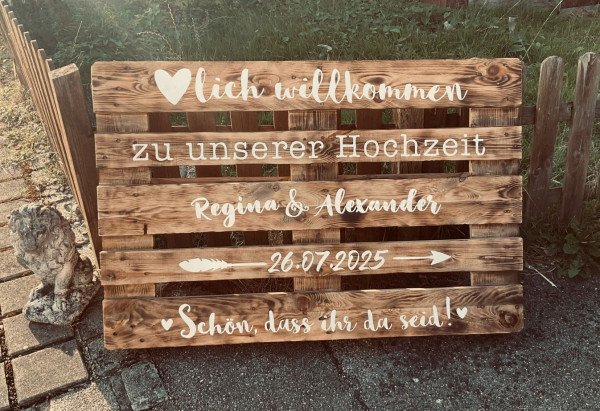 ♥lich willkommen
zu unserer Hochzeit
Regina & Alexander
26.07.2025
Schön, dass ihr da seid!